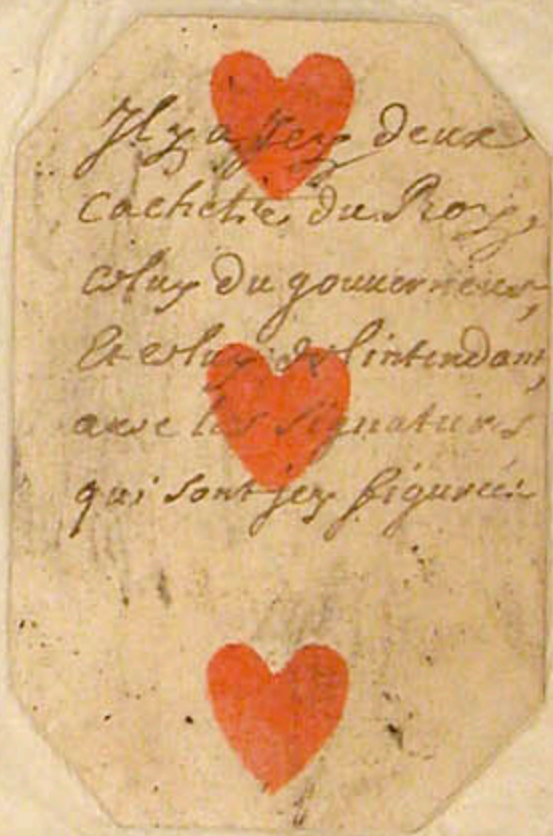 Il y a jcy deux
cachetes du Roy,
celuy du gouuerneur,
Et celuy de lintendant,
avec les signatures
qui sont jcy figureés